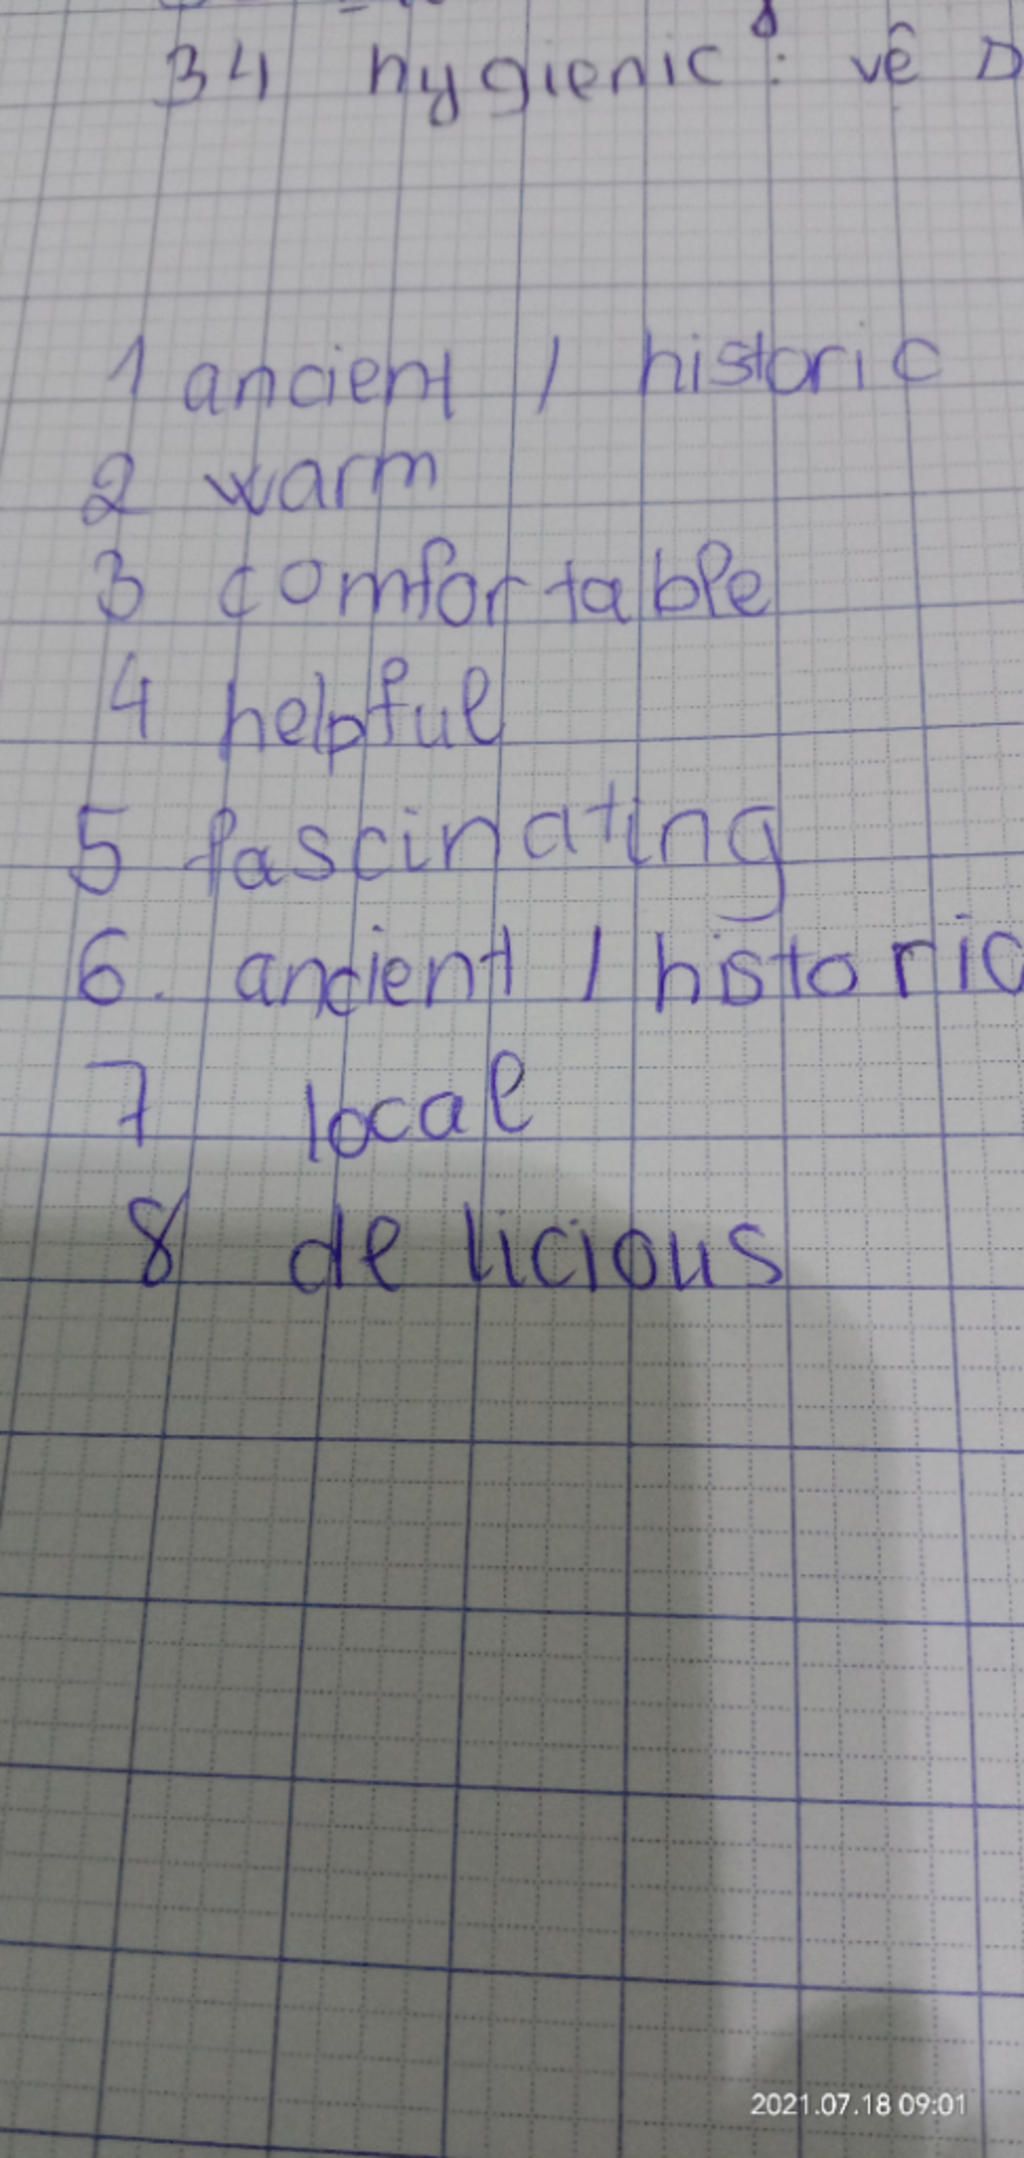 34 hygienic : vê
1 ancient / historic
2 warm
3 comfortable
4 helpful
5 fascinating
6. ancient / historic
7 local
8 delicious
2021.07.18 09:01